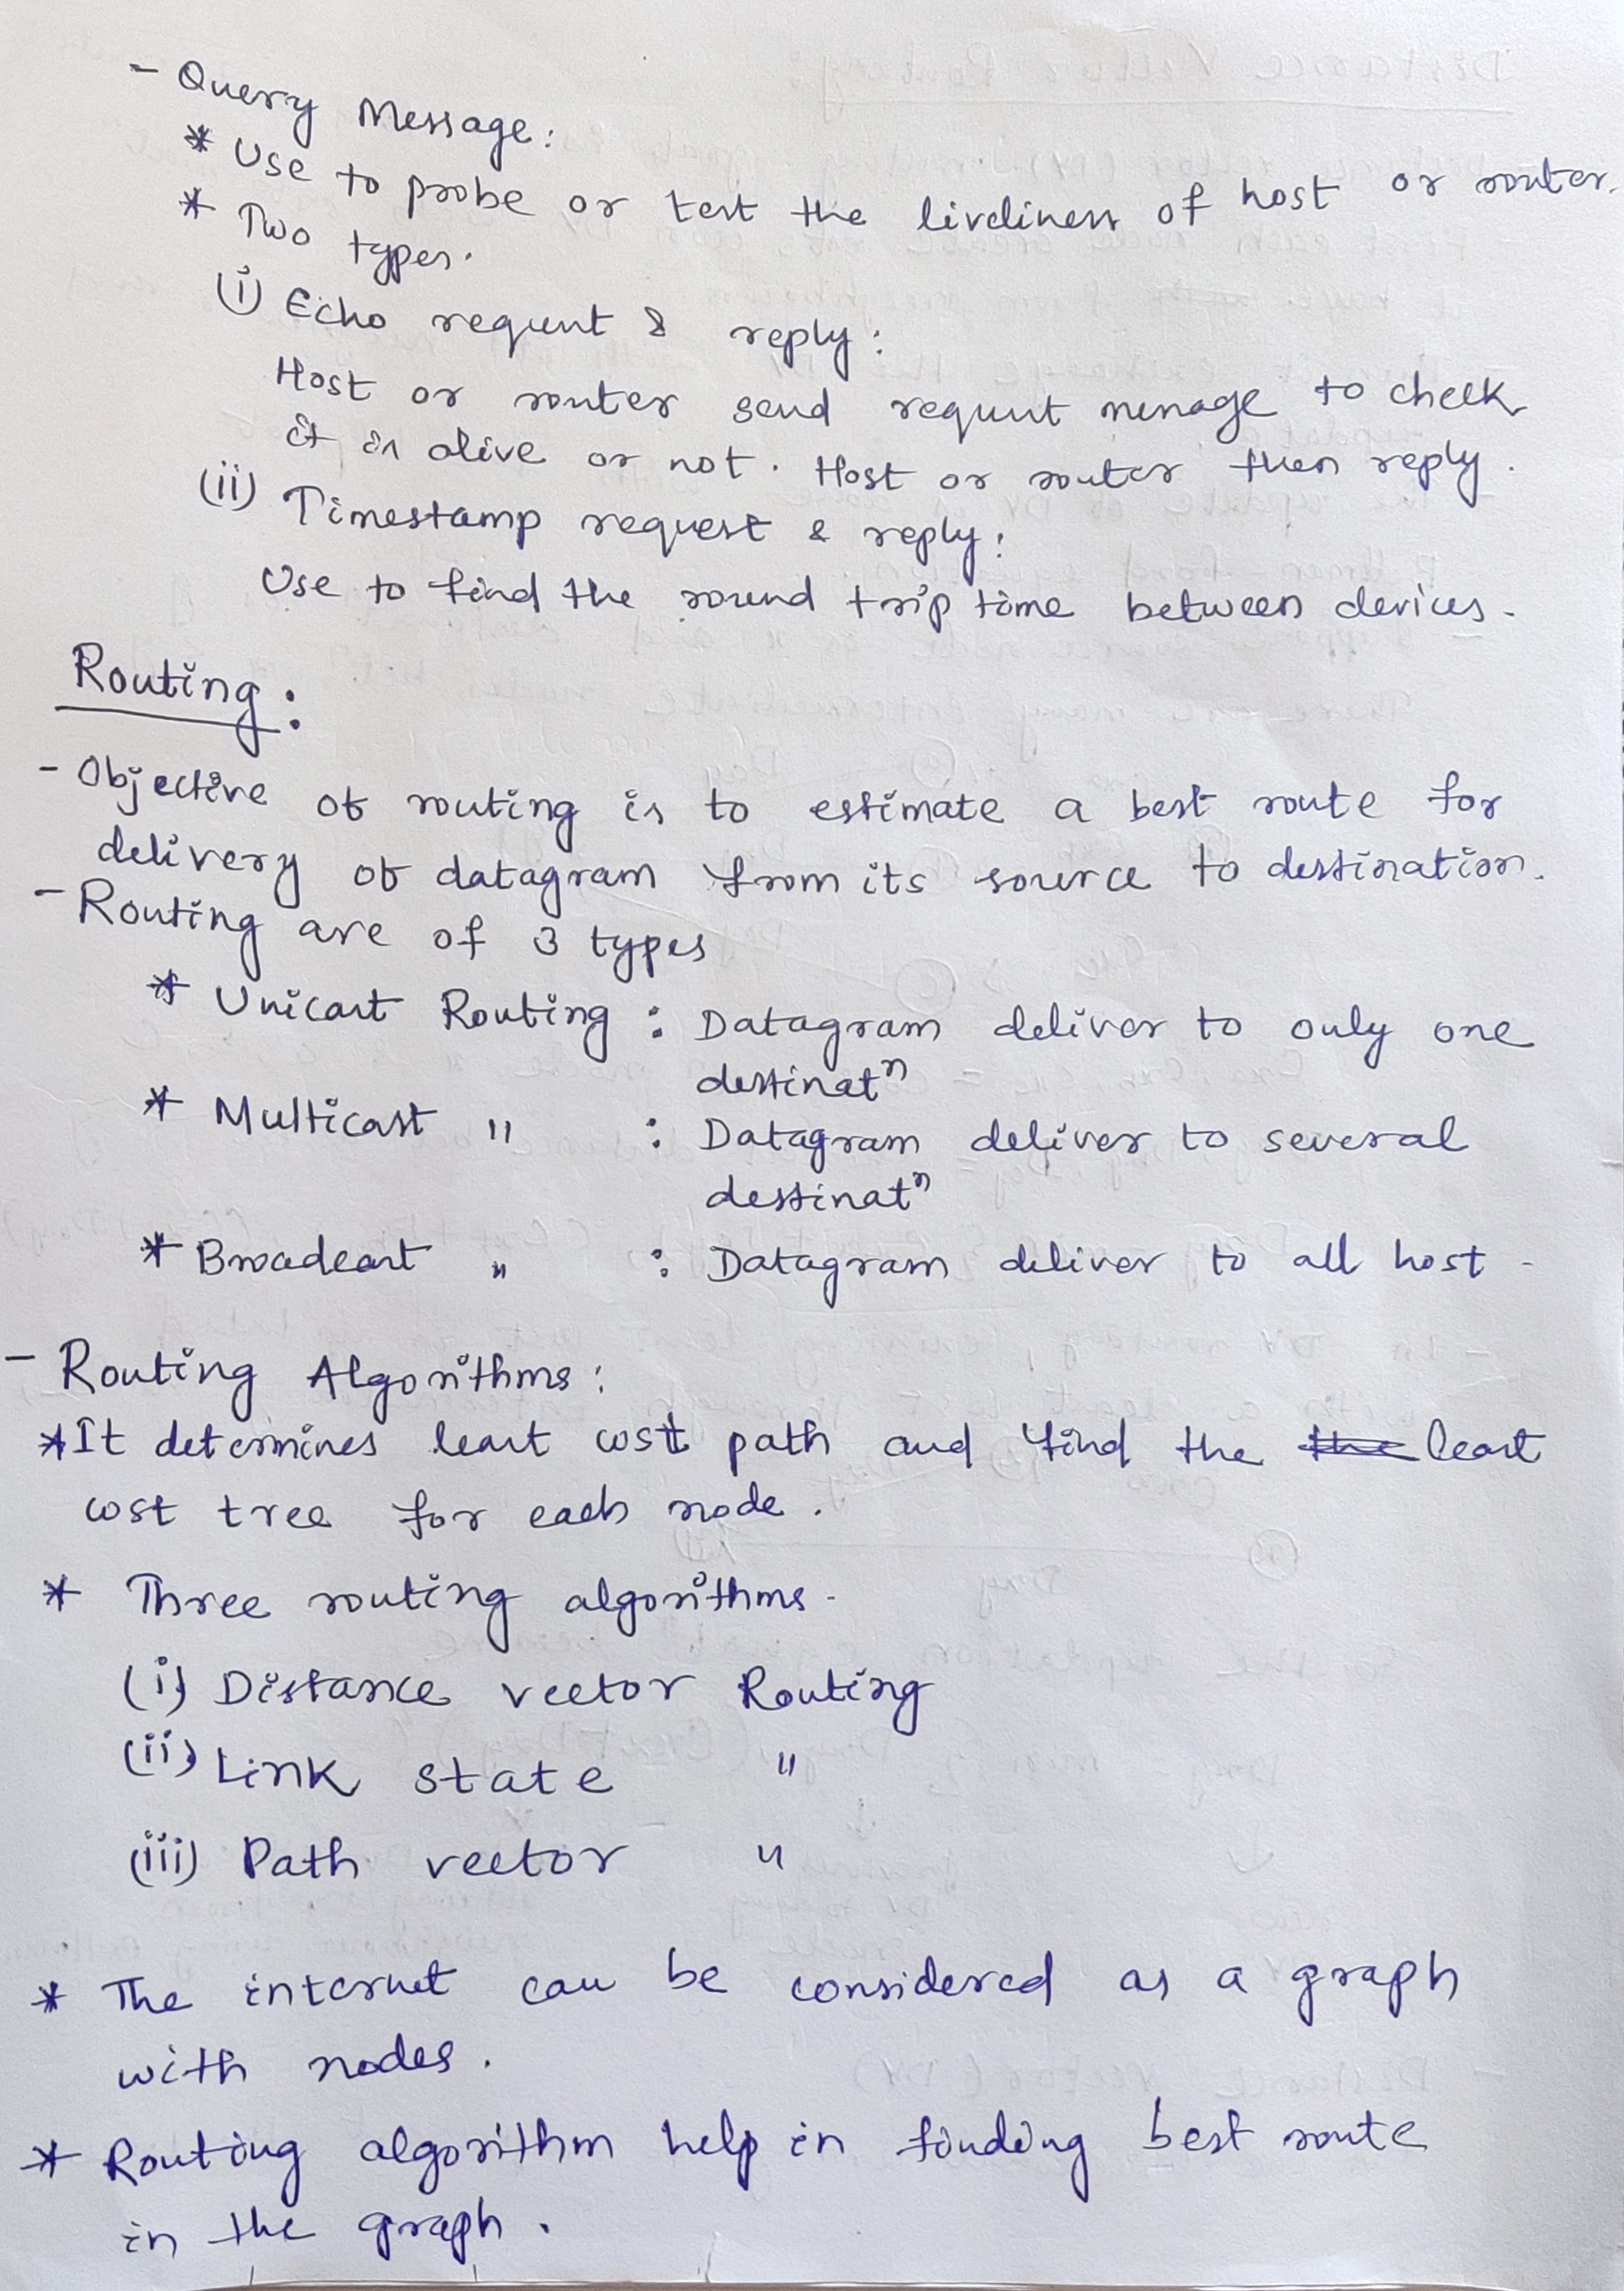 - Query Message:
* Use to probe or test the liveliness of host or router.
* Two types.
(i) Echo request & reply:
Host or router send request message to check
it is alive or not. Host or router then reply.
(ii) Timestamp request & reply:
Use to find the round trip time between devices.
Routing:
- Objective of routing is to estimate a best route for
delivery of datagram from its source to destination.
- Routing are of 3 types
* Unicast Routing : Datagram deliver to only one
destinatⁿ
* Multicast " : Datagram deliver to several
destinatⁿ
* Broadcast " : Datagram deliver to all host.
- Routing Algorithms:
* It determines least cost path and find the the least
cost tree for each node.
* Three routing algorithms.
(i) Distance vector Routing
(ii) Link state "
(iii) Path vector "
* The internet can be considered as a graph
with nodes.
* Routing algorithm help in finding best route
in the graph.